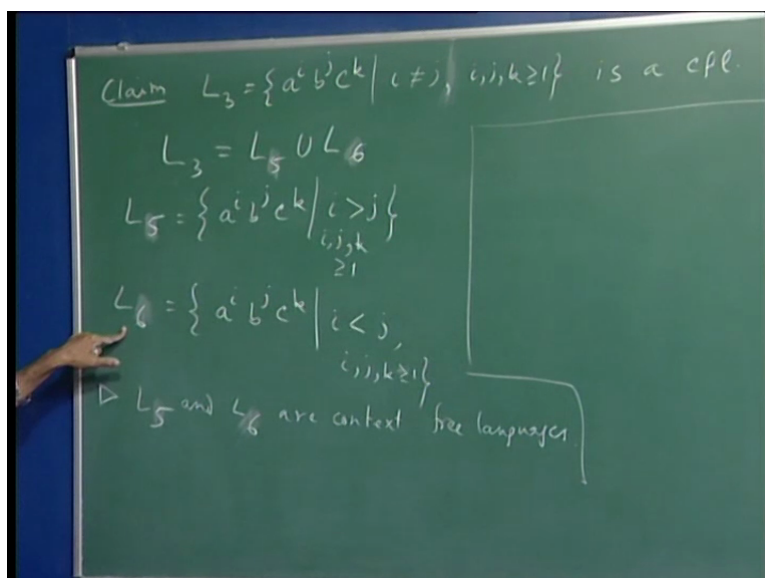 Claim L₃ = { aⁱ bʲ cᵏ | i ≠ j, i,j,k ≥ 1} is a cfl.
L₃ = L₅ ∪ L₆
L₅ = { aⁱ bʲ cᵏ | i > j }
i,j,k
≥ 1
L₆ = { aⁱ bʲ cᵏ | i < j,
i,j,k ≥ 1}
▷ L₅ and L₆ are context free languages.